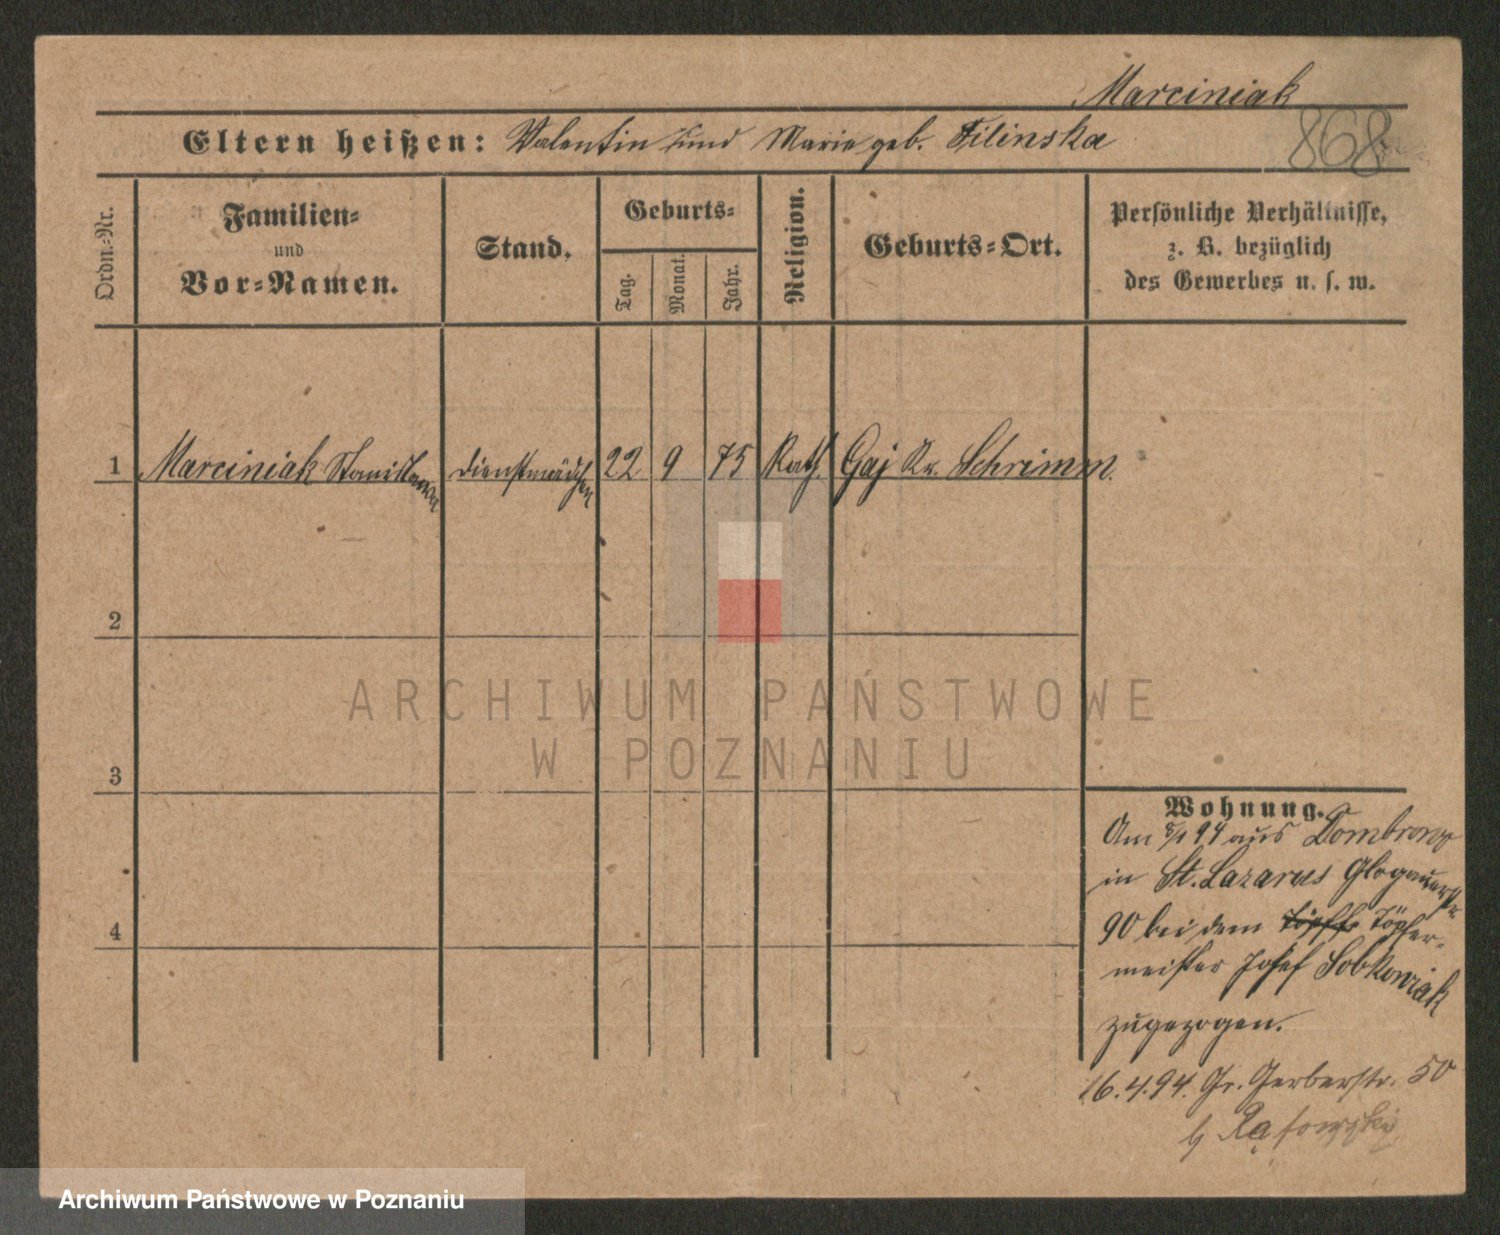 Marciniak
868
Eltern heißen: Valentin und Marie geb. Filinska
Ordn.-Nr.
Familien-
und
Vor-Namen.
Stand.
Geburts-
Tag.
Monat.
Jahr.
Religion.
Geburts-Ort.
Persönliche Verhältnisse,
z. B. bezüglich
des Gewerbes u. s. w.
1 Marciniak Stanislawa Dienstmädchen 22 9 75 Kath. Gaj Kr. Schrimm.
2
3
4
ARCHIWUM PAŃSTWOWE
W POZNANIU
Wohnung.
Am 8/1 94 aus Dombrowo
in St. Lazarus Glogauerstr
90 bei dem Töpfer-
meister Josef Sobkowiak
zugezogen.
16.4.94. Gr. Gerberstr. 50
b
Archiwum Państwowe w Poznaniu